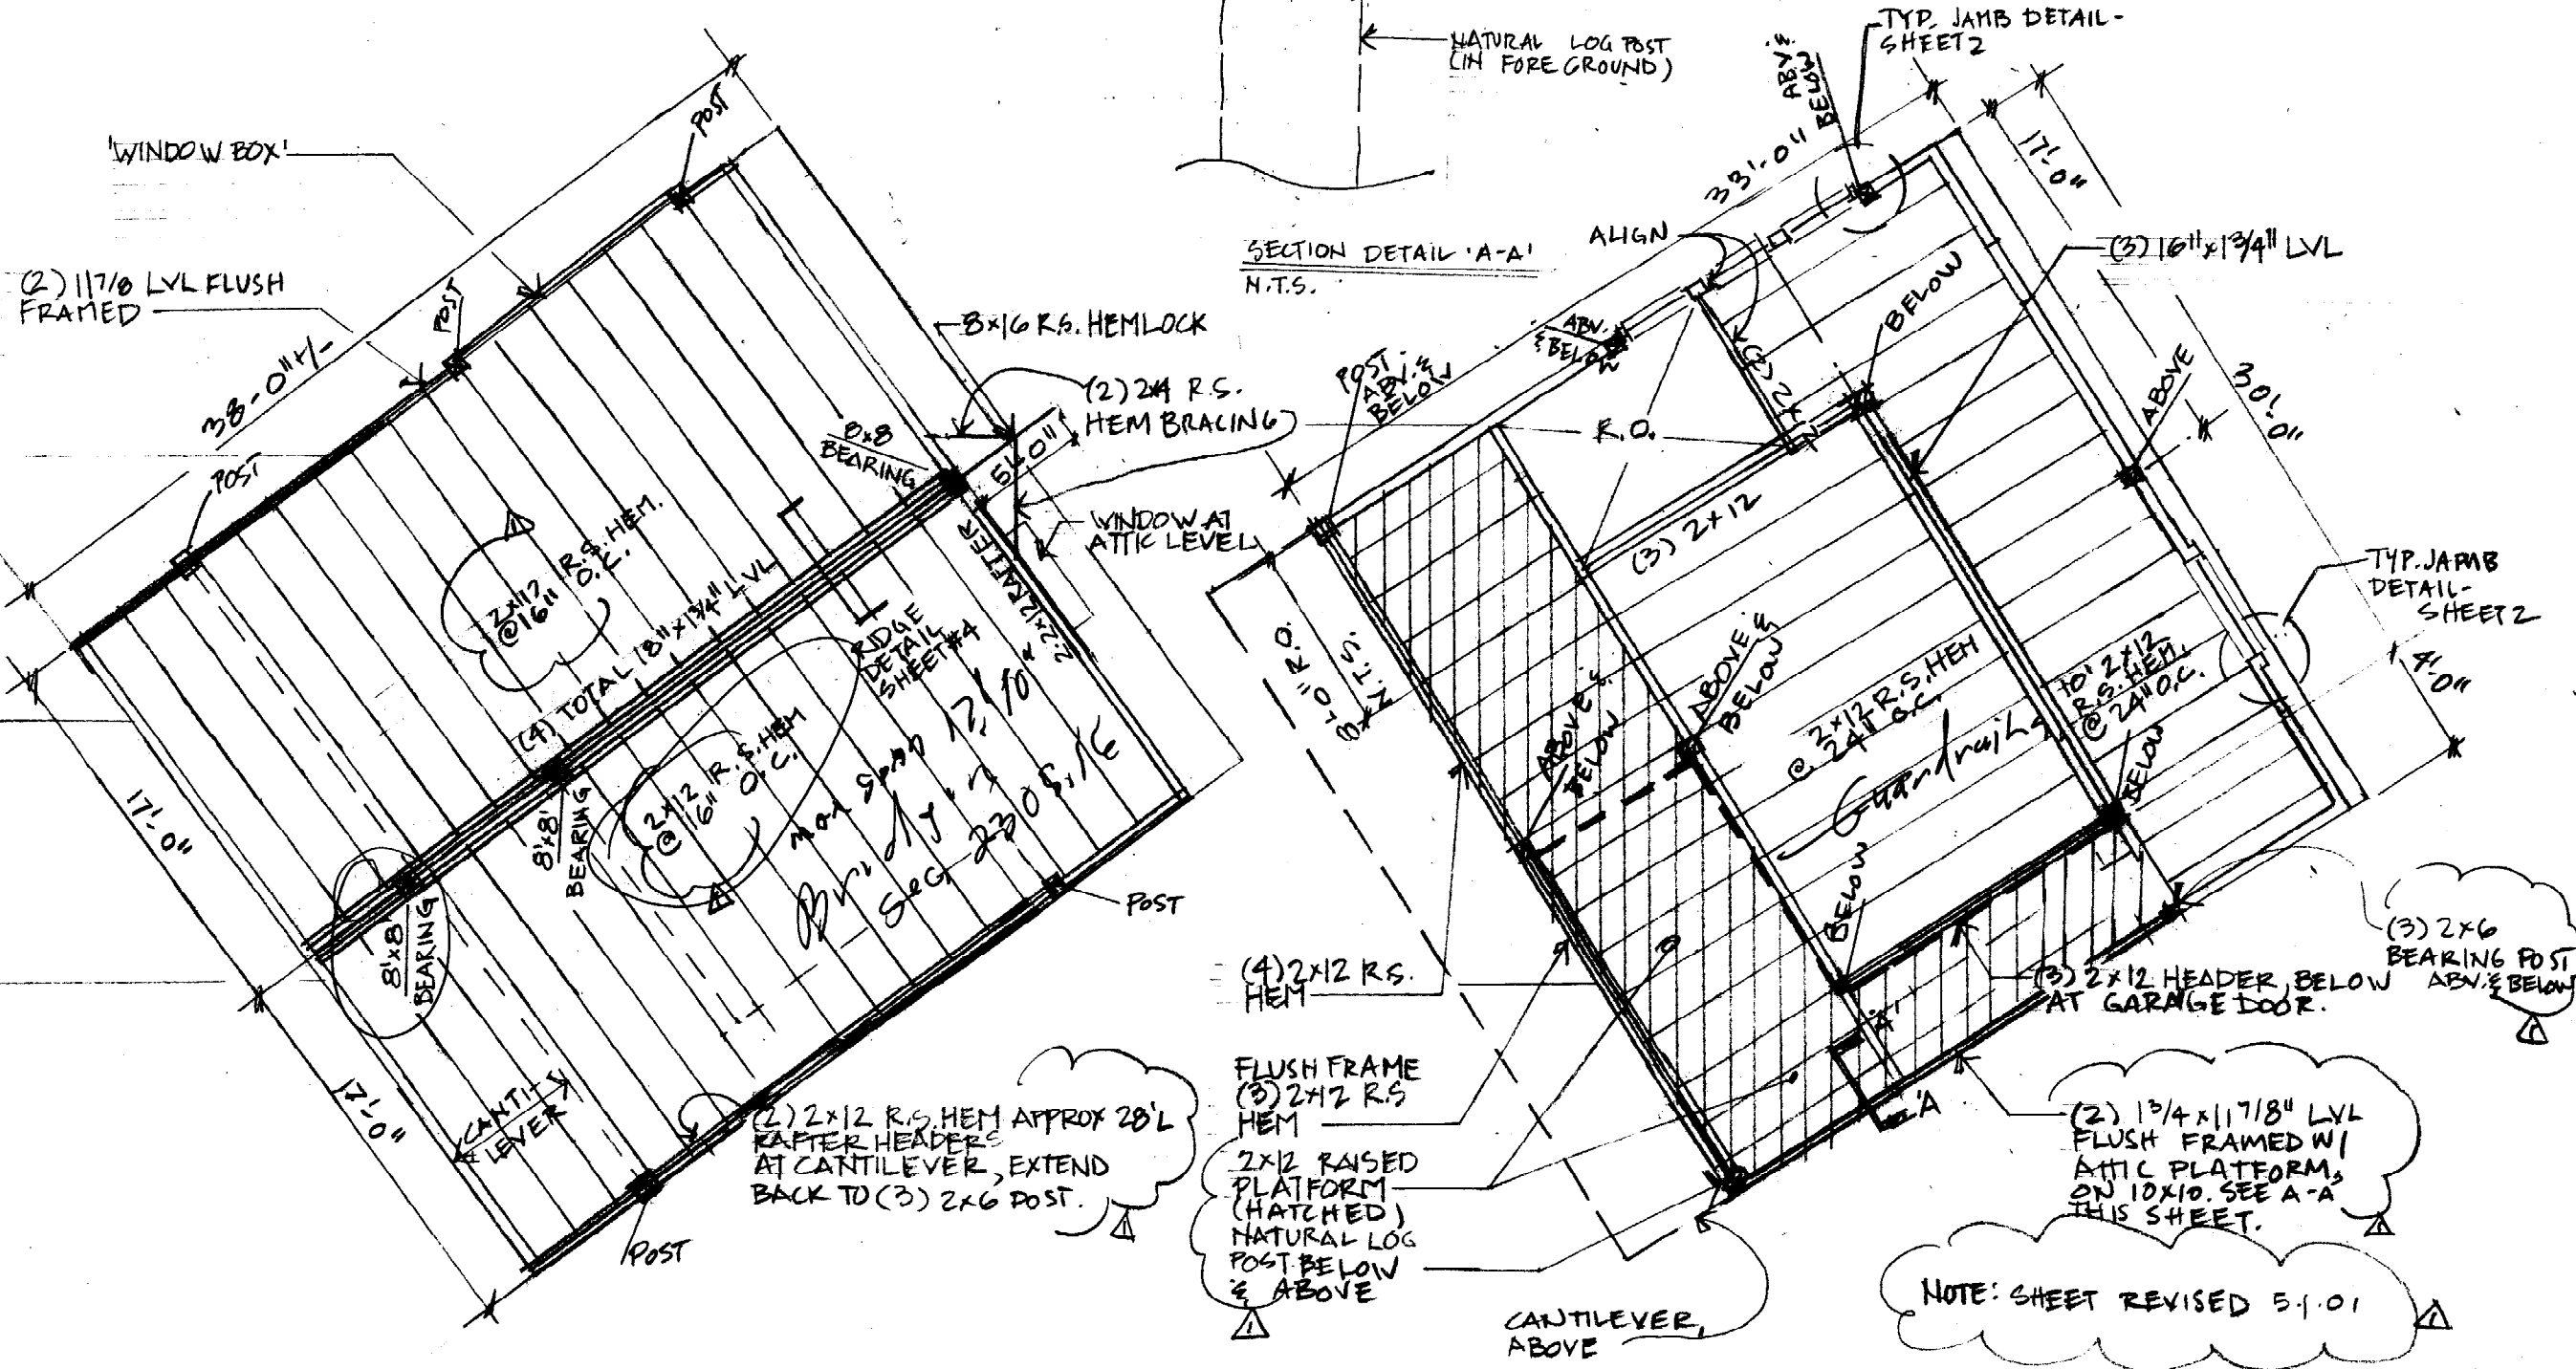 'WINDOW BOX'
(2) 11 7/8 LVL FLUSH
FRAMED
38'-0" +/-
POST
POST
POST
8x16 R.S. HEMLOCK
(2) 2x4 R.S.
HEM BRACING
5'-0"
8x8
BEARING
WINDOW AT
ATTIC LEVEL
2x12 R.S. HEM.
@ 16" O.C.
(4) TOTAL 18"x1 3/4" LVL
RIDGE
DETAIL
SHEET #4
2-2x12 RAFTER
2x12 R.S. HEM
@ 16" O.C.
max span 17'10"
Sec 2305.16
8'x8'
BEARING
8'x8'
BEARING
17'-0"
17'-0"
CANTI-
LEVER
POST
POST
(2) 2x12 R.S. HEM APPROX 28'L
RAFTER HEADERS
AT CANTILEVER, EXTEND
BACK TO (3) 2x6 POST.
NATURAL LOG POST
(IN FORE GROUND)
SECTION DETAIL 'A-A'
N.T.S.
TYP. JAMB DETAIL-
SHEET 2
ABV. &
BELOW
33'-0"
17'-0"
ALIGN
(3) 16"x1 3/4" LVL
BELOW
ABV.
& BELOW
POST
ABV. &
BELOW
R.O.
(3) 2x12
(3) 2x12
ABOVE
30'-0"
TYP. JAMB
DETAIL-
SHEET 2
4'-0"
N.T.S.
ABOVE &
BELOW
ABOVE &
BELOW
2x12 R.S. HEM
@ 24" O.C.
Guardrails
10' 2x12
R.S. HEM.
@ 24" O.C.
BELOW
BELOW
(3) 2x6
BEARING POST
ABV. & BELOW
(3) 2x12 HEADER, BELOW
AT GARAGE DOOR.
(4) 2x12 R.S.
HEM
FLUSH FRAME
(3) 2x12 R.S
HEM
2x12 RAISED
PLATFORM
(HATCHED)
NATURAL LOG
POST BELOW
& ABOVE
'A'
'A
(2) 1 3/4 x 11 7/8" LVL
FLUSH FRAMED W/
ATTIC PLATFORM,
ON 10x10. SEE A-A
THIS SHEET.
CANTILEVER,
ABOVE
NOTE: SHEET REVISED 5.1.01